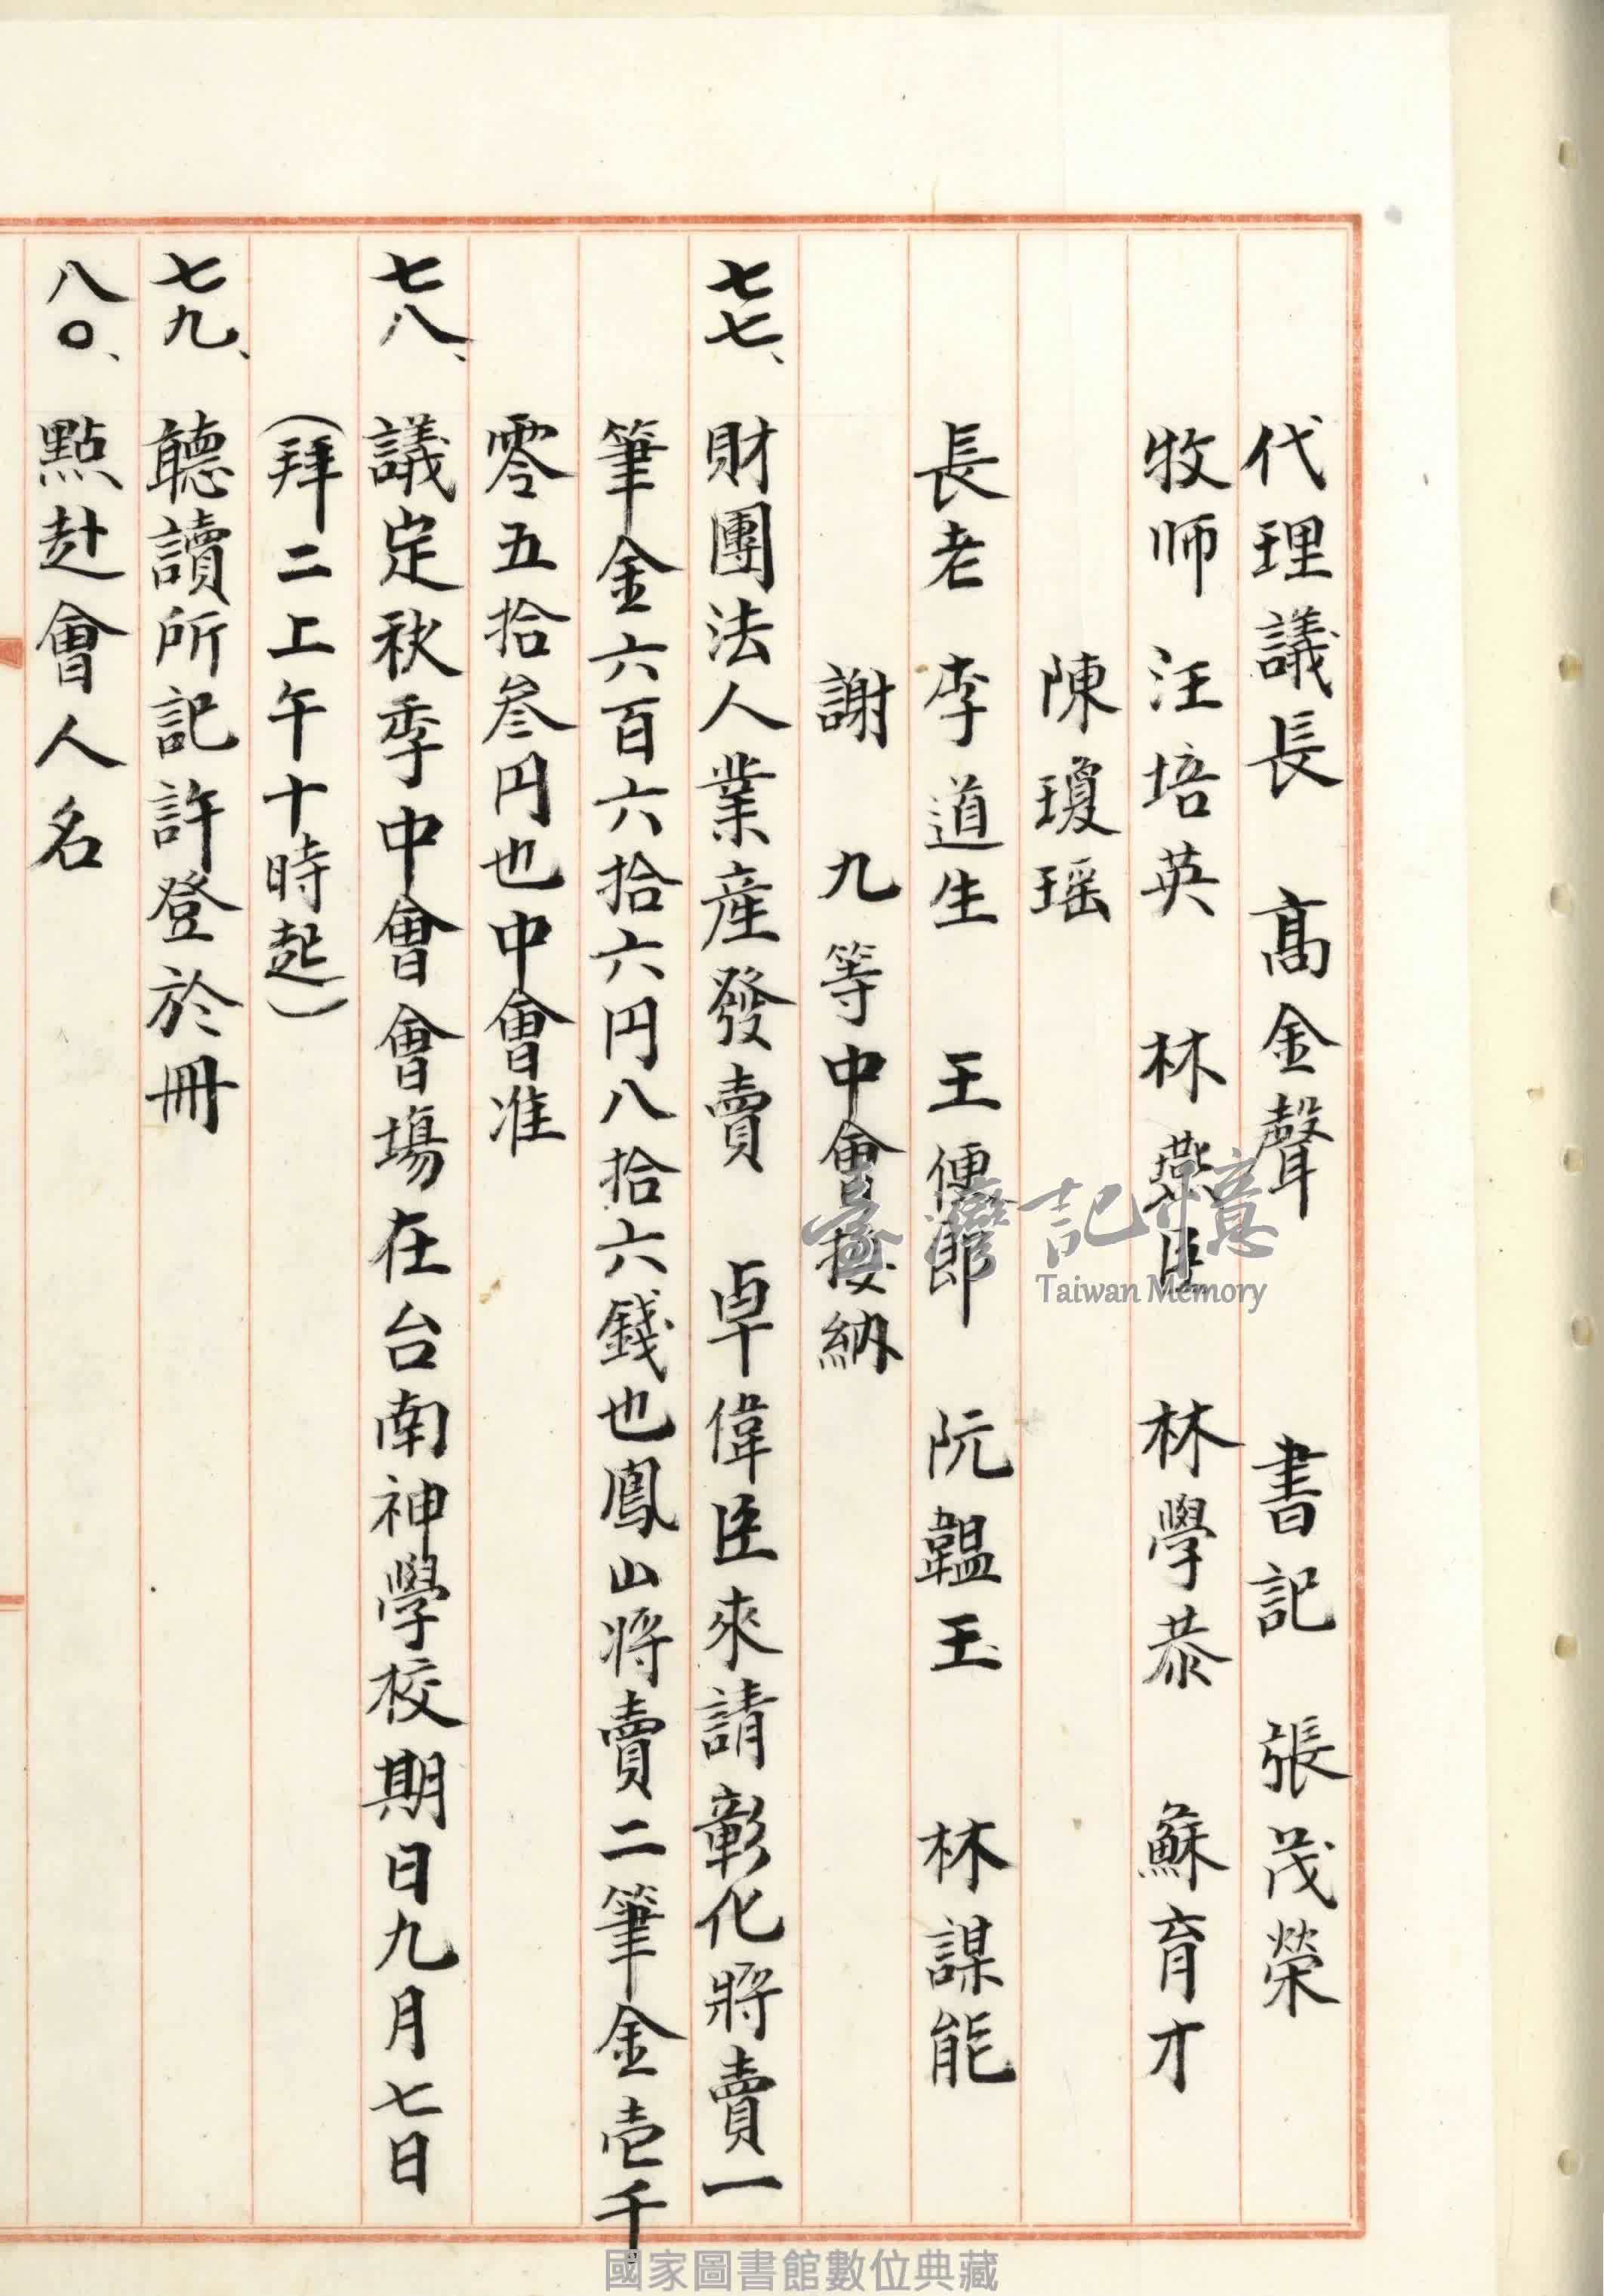 代理議長 高金聲 書記 張茂榮
牧师 汪培英 林燕臣 林學恭 蘇育才
陳瓊瑶
長老 李道生 王便郎 阮韞玉 林謀能
謝 九等中會接納
七七、財團法人業産發賣 卓偉臣來請彰化將賣一
筆金六百六拾六円八拾六錢也鳳山將賣二筆金壱千
零五拾叁円也中會准
七八、議定秋季中會會場在台南神學校期日九月七日
(拜二上午十時起)
七九、聽讀所記許登於冊
八〇、點赴會人名
臺灣記憶
Taiwan Memory
國家圖書館數位典藏